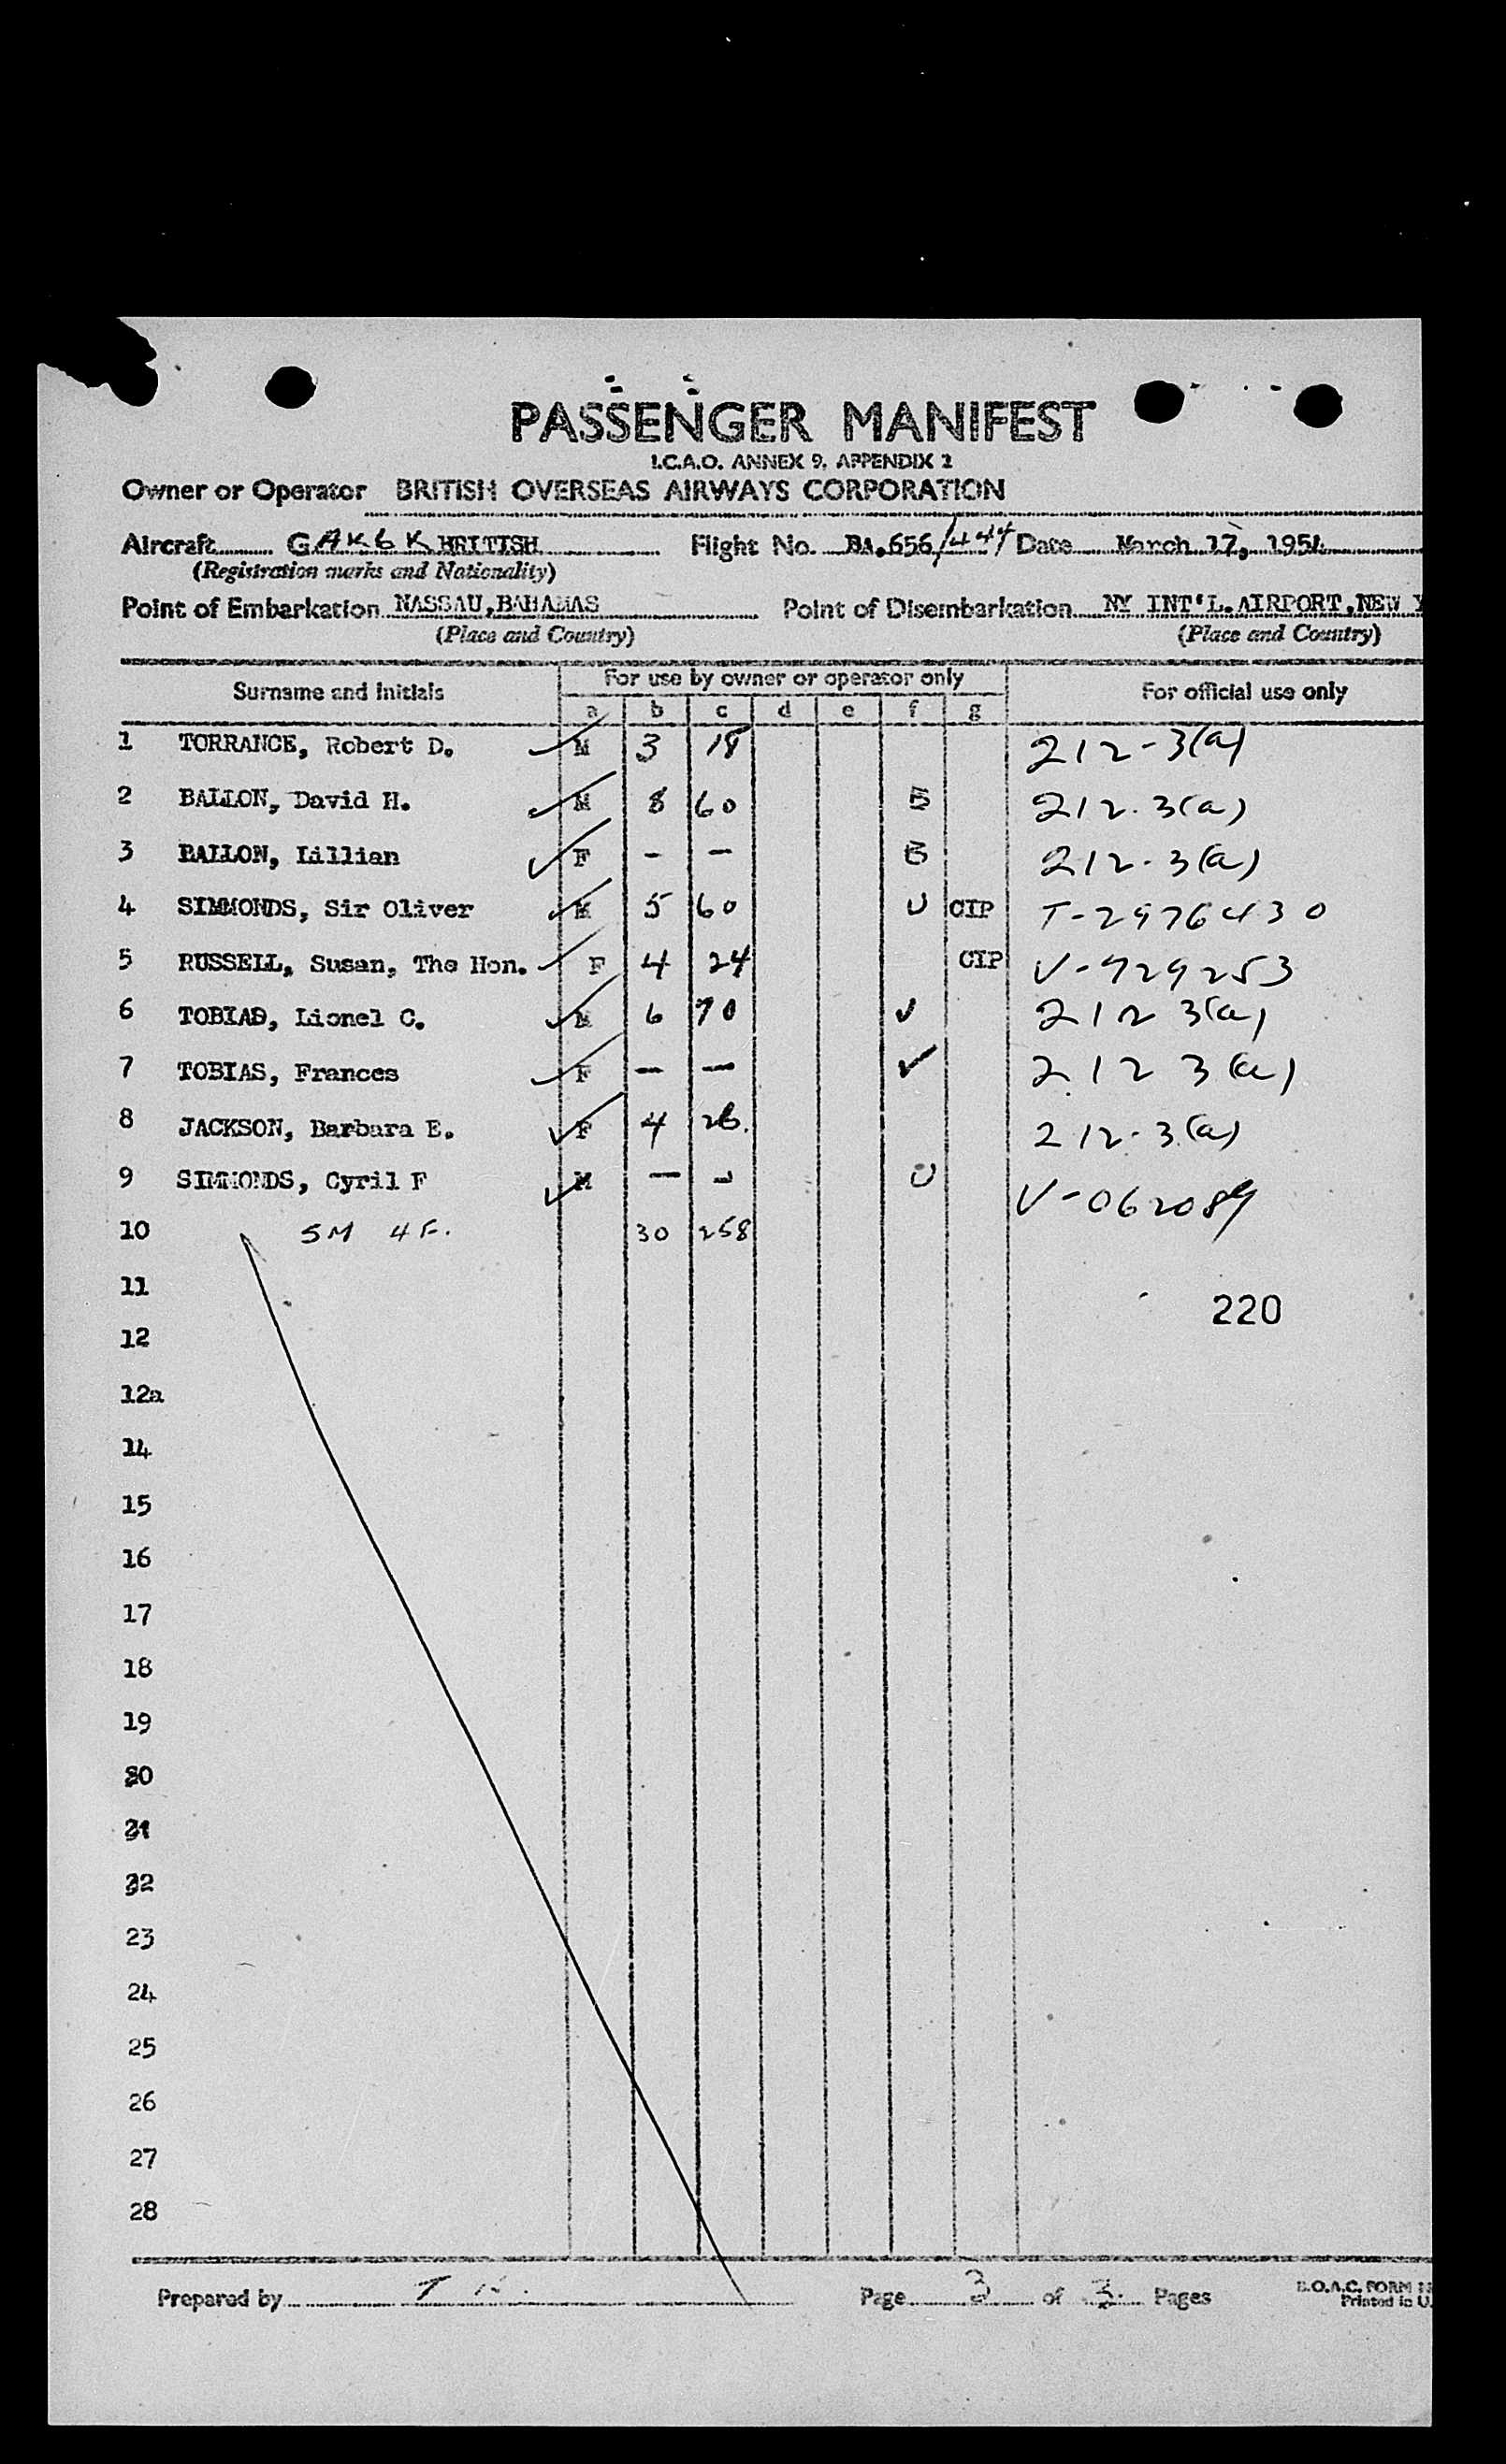 PASSENGER MANIFEST
I.C.A.O. ANNEX 9, APPENDIX 2
Owner or Operator BRITISH OVERSEAS AIRWAYS CORPORATION
Aircraft GAKGK BRITISH Flight No. BA.656/444 Date March 17, 1954
(Registration marks and Nationality)
Point of Embarkation NASSAU, BAHAMAS Point of Disembarkation NY INT'L. AIRPORT, NEW Y
(Place and Country) (Place and Country)
Surname and Initials For use by owner or operator only For official use only
a b c d e f g
1 TORRANCE, Robert D. M 3 18 212-3(a)
2 BALLON, David H. M 8 60 B 212.3(a)
3 BALLON, Lillian F - - B 212-3(a)
4 SIMMONDS, Sir Oliver M 5 60 U CIP T-2976430
5 RUSSELL, Susan, The Hon. F 4 24 CIP V-929253
6 TOBIAS, Lionel C. M 6 70 ✓ 212 3(a)
7 TOBIAS, Frances F - - ✓ 212 3(a)
8 JACKSON, Barbara E. F 4 26. 212-3(a)
9 SIMMONDS, Cyril F M - - U V-062089
10 5M 4F. 30 258
11
220
12
12a
14
15
16
17
18
19
20
21
22
23
24
25
26
27
28
Prepared by Page 3 of 3 Pages B.O.A.C. FORM
Printed in U.